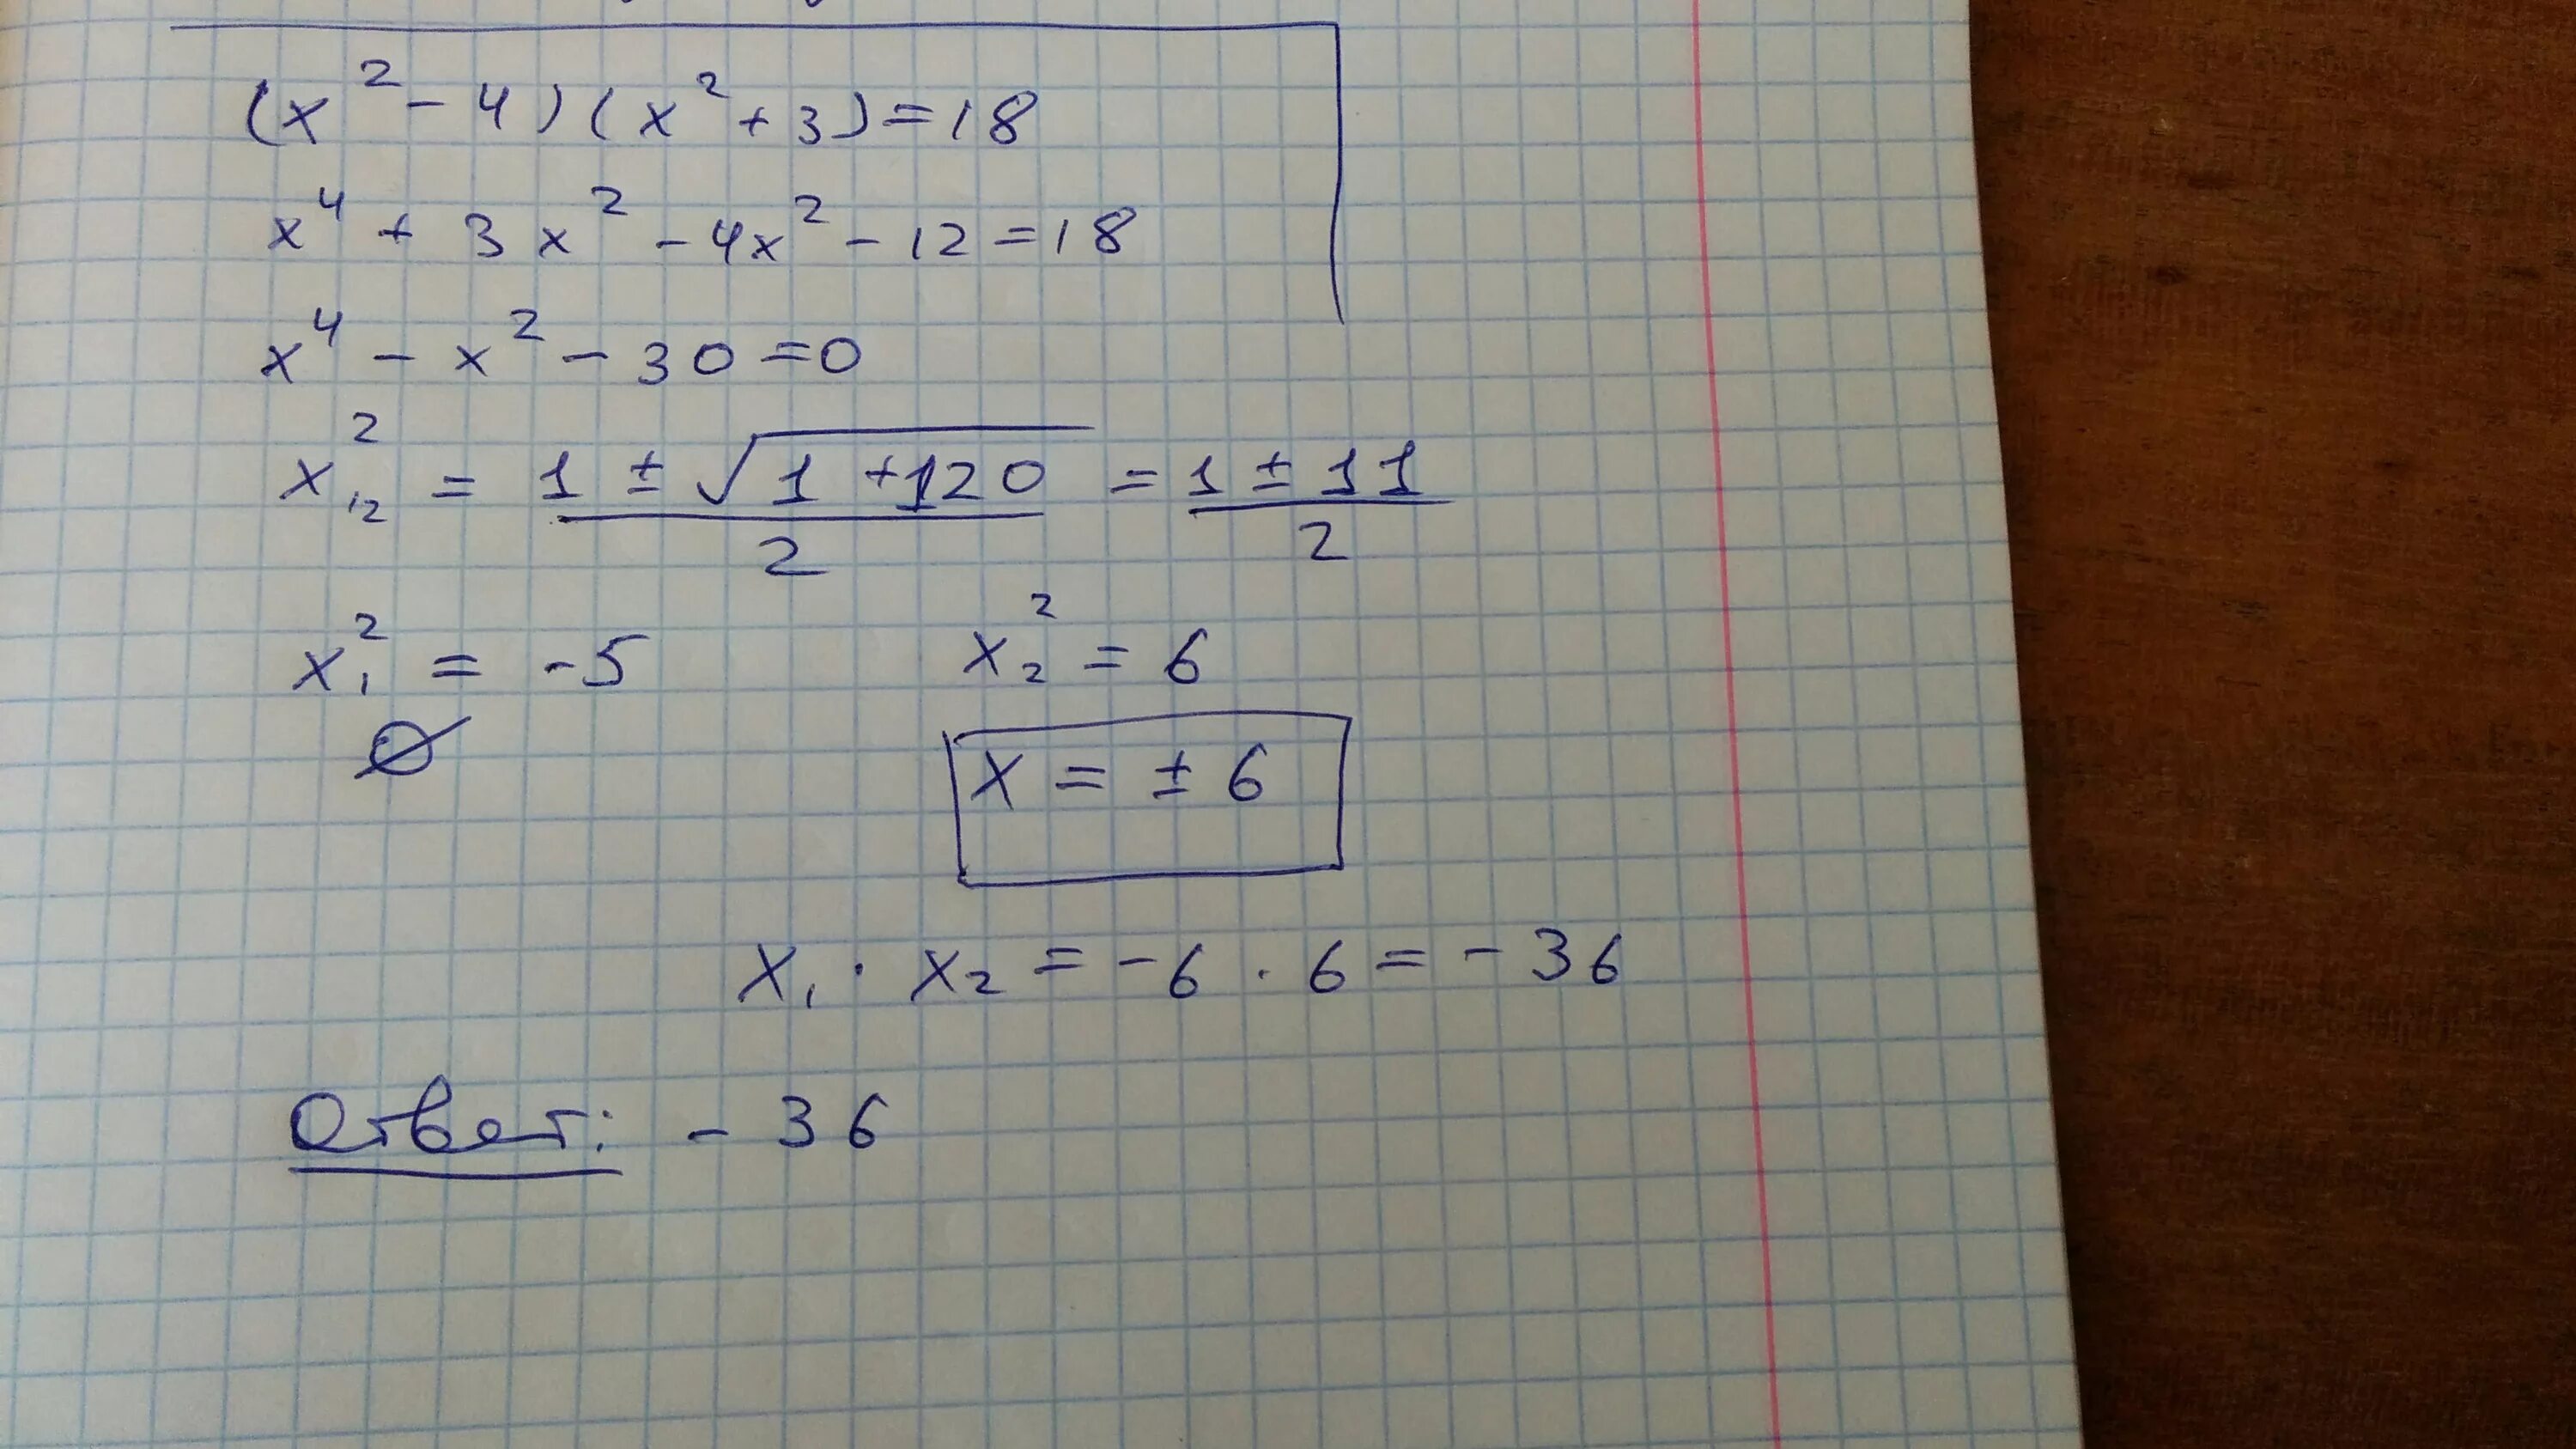 (x² - 4)(x² + 3) = 18
x⁴ + 3x² - 4x² - 12 = 18
x⁴ - x² - 30 = 0
x²₁₂ = (1 ± √(1 + 120))/2 = (1 ± 11)/2
x₁² = -5 x₂² = 6
∅ x = ± 6
x₁ · x₂ = -6 · 6 = -36
Ответ: - 36